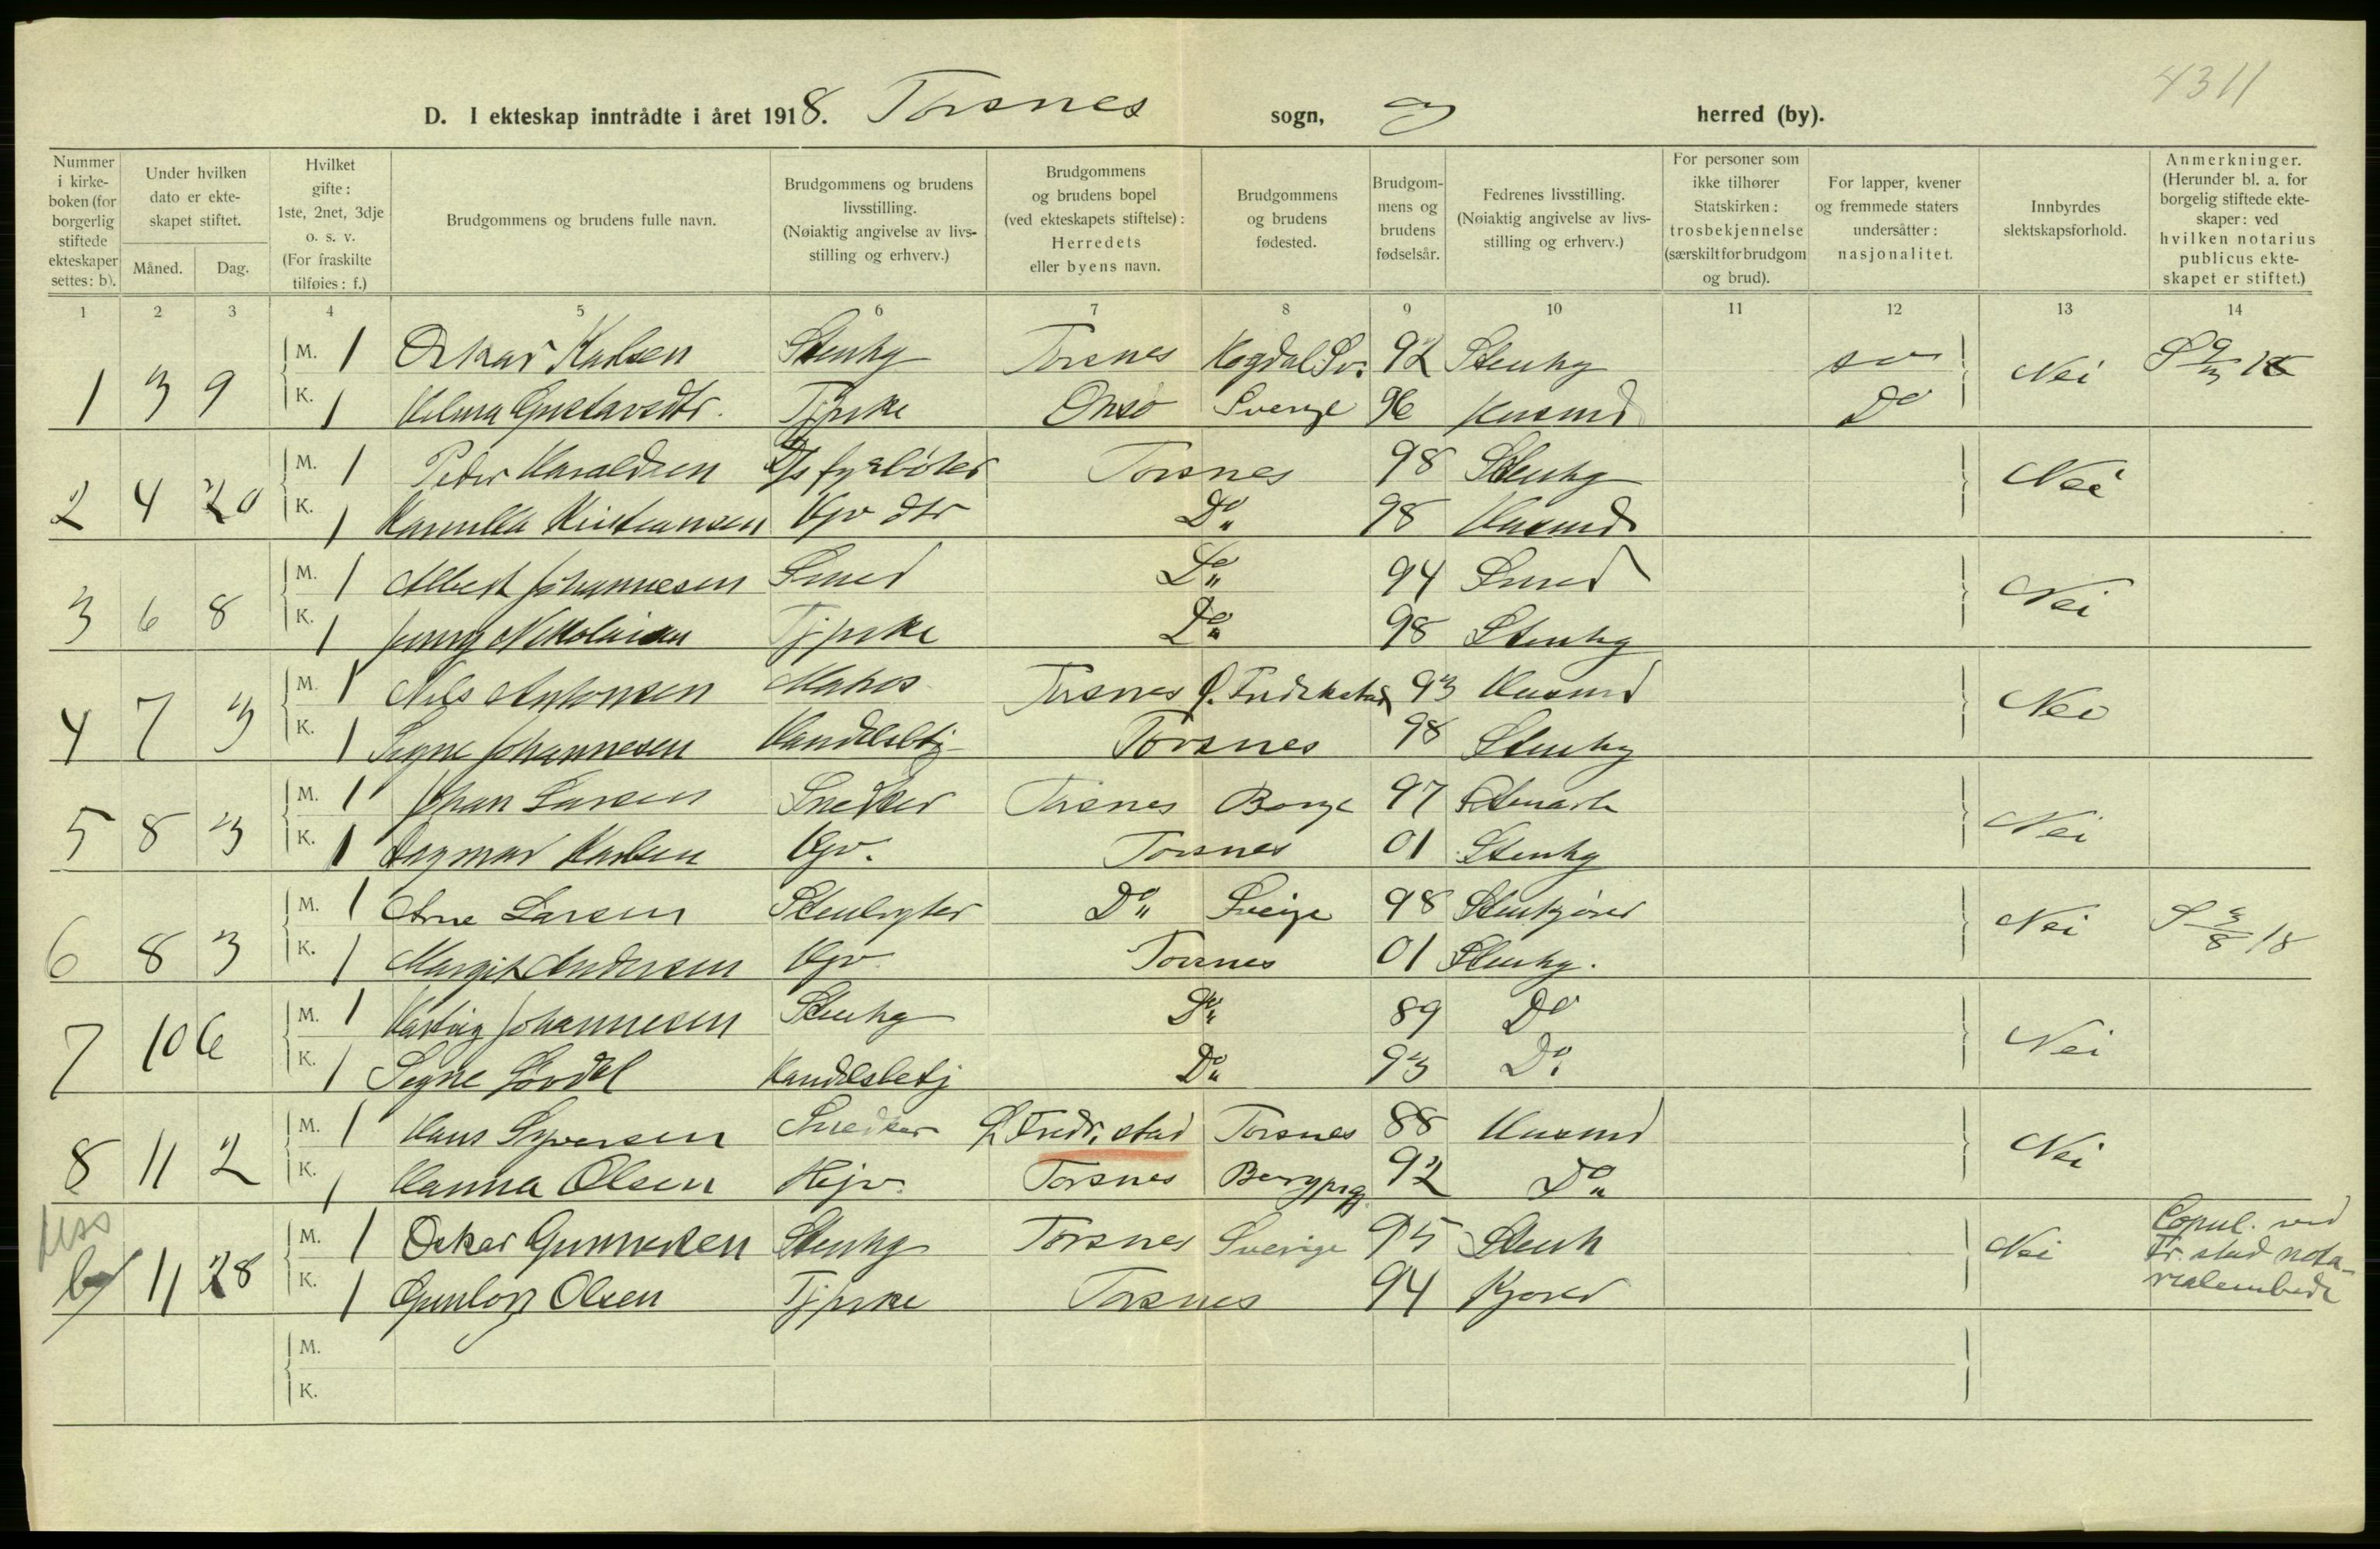 4311
D. I ekteskap inntrådte i året 1918. Torsnes sogn, og herred (by).
Nummer i kirke-boken (for borgerlig stiftede ekteskaper settes: b).
Under hvilken dato er ekte-skapet stiftet.
Måned. Dag.
Hvilket gifte: 1ste, 2net, 3dje o. s. v. (For fraskilte tilføies: f.)
Brudgommens og brudens fulle navn.
Brudgommens og brudens livsstilling. (Nøiaktig angivelse av livs-stilling og erhverv.)
Brudgommens og brudens bopel (ved ekteskapets stiftelse): Herredets eller byens navn.
Brudgommens og brudens fødested.
Brudgom-mens og brudens fødselsår.
Fedrenes livsstilling. (Nøiaktig angivelse av livs-stilling og erhverv.)
For personer som ikke tilhører Statskirken: trosbekjennelse (særskilt for brudgom og brud).
For lapper, kvener og fremmede staters undersåtter: nasjonalitet.
Innbyrdes slektskapsforhold.
Anmerkninger. (Herunder bl. a. for borgelig stiftede ekte-skaper: ved hvilken notarius publicus ekte-skapet er stiftet.)
1 2 3 4 5 6 7 8 9 10 11 12 13 14
M. 1 Oskar Karlsen Stenhg Torsnes Hogdal Sv. 92 Stenhg sv
1 3 9 Nei S 9/3 18
K. 1 Helma Gustavsdtr. Tjpike Onsø Sverige 96 Husmd Do
M. 1 Peder Haraldsen D/s fyrbøter Torsnes 98 Stenhg
2 4 20 Nei
K. 1 Kamilla Kristiansen Hjv dtr Do 98 Husmd
M. 1 Albert Johannesen Smed Do 94 Smed
3 6 8 Nei
K. 1 Jenny Nikolaisen Tjpike Do 98 Stenhg
M. 1 Nils Antonsen Matros Torsnes Ø. Fredrikstad 93 Husmd
4 7 3 Nei
K. 1 Signe Johannesen Handelsbtj Torsnes 98 Stenhg
M. 1 Johan Larsen Snedker Torsnes Borge 97 Stenarb
5 8 3 Nei
K. 1 Dagmar Karlsen Hjv. Torsnes 01 Stenhg
M. 1 Arne Larsen Do Sverige 98 Stenkjører
6 8 3 Nei S 3/8 18
K. 1 Margit Andersen Hjv Torsnes 01 Stenhg.
M. 1 Johannesen Stenhg Do 89 Do
7 10 6 Nei
K. 1 Signe Handelsbetj Do 93 Do.
M. 1 Hans Syversen Snedker Fredr.stad Torsnes 88 Husmd
8 11 2 Nei
K. 1 Hanna Olsen Hjv. Torsnes 92 Do
M. 1 Oskar Gunnersen Stenhg Torsnes Sverige 95 Stenh
b 11 28 Nei Copul. ved Fr.stad nota-rialembede
K. 1 Gunlørg Olsen Tjpike Torsnes 94 Kjører
M.
K.